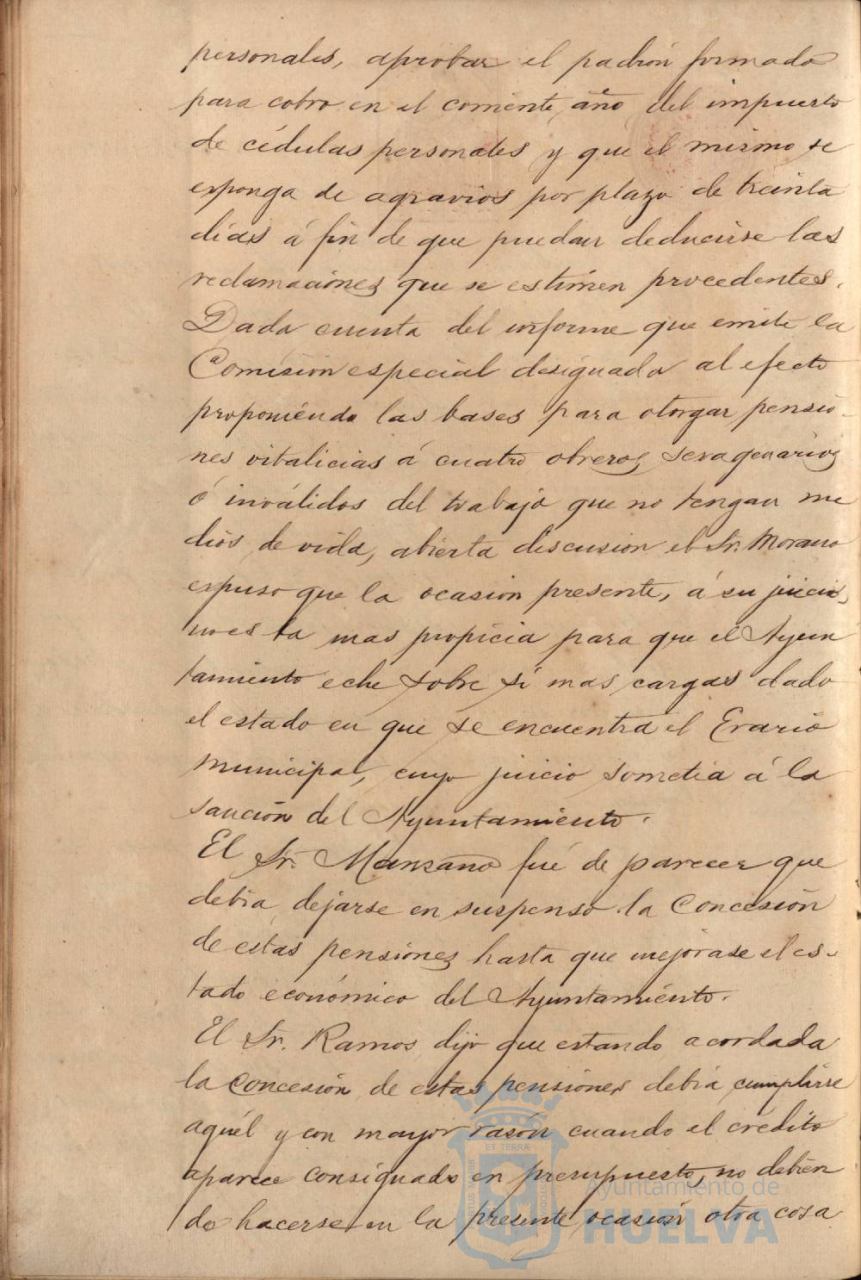 personales, aprobar el padrón formado
para cobro en el corriente año del impuesto
de cédulas personales y que el mismo se
esponga de agravios por plazo de treinta
días á fin de que puedan deducirse las
reclamaciones que se estimen procedentes.
Dada cuenta del informe que emite la
Comisión especial designada al efecto
proponiendo las bases para otorgar pensio-
nes vitalicias á cuatro obreros sexagenarios
ó inválidos del trabajo que no tengan me
dios de vida, abierta discusion el Sr. Morano
espuso que la ocasion presente, á su juicio,
no es la mas propicia para que el Ayun
tamiento eche sobre sí mas cargas dado
el estado en que se encuentra el Erario
municipal, cuyo juicio sometia á la
sanción del Ayuntamiento.
El Sr. Manzano fué de parecer que
debia dejarse en suspenso la Concesión
de estas pensiones hasta que mejorase el es-
tado económico del Ayuntamiento.
El Sr. Ramos dijo que estando acordada
la Concesión de estas pensiones debia cumplirse
aquél y con mayor razón cuando el crédito
aparece consignado en presupuesto, no debien
do hacerse en la presente ocasión otra cosa
ET TERRÆ
Ayuntamiento de
HUELVA